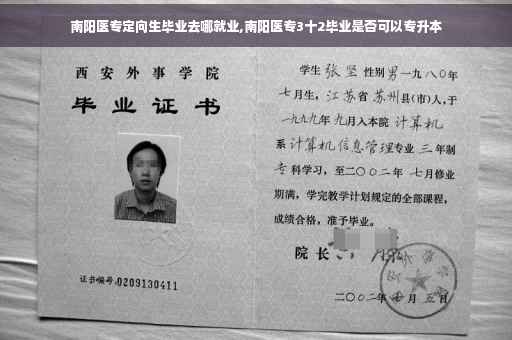 南阳医专定向生毕业去哪就业,南阳医专3十2毕业是否可以专升本
西安外事学院
毕业证书
证书编号:0209130411
学生 张坚 性别 男 一九八〇年
七月生, 江苏省 苏州 县(市)人,于
一九九九年 九月入本院 计算机
系 计算机信息管理 专业 三 年制
专 科学习, 至二〇〇二年 七月修业
期满, 学完教学计划规定的全部课程,
成绩合格, 准予毕业。
院长
二〇〇二年 七月 五日